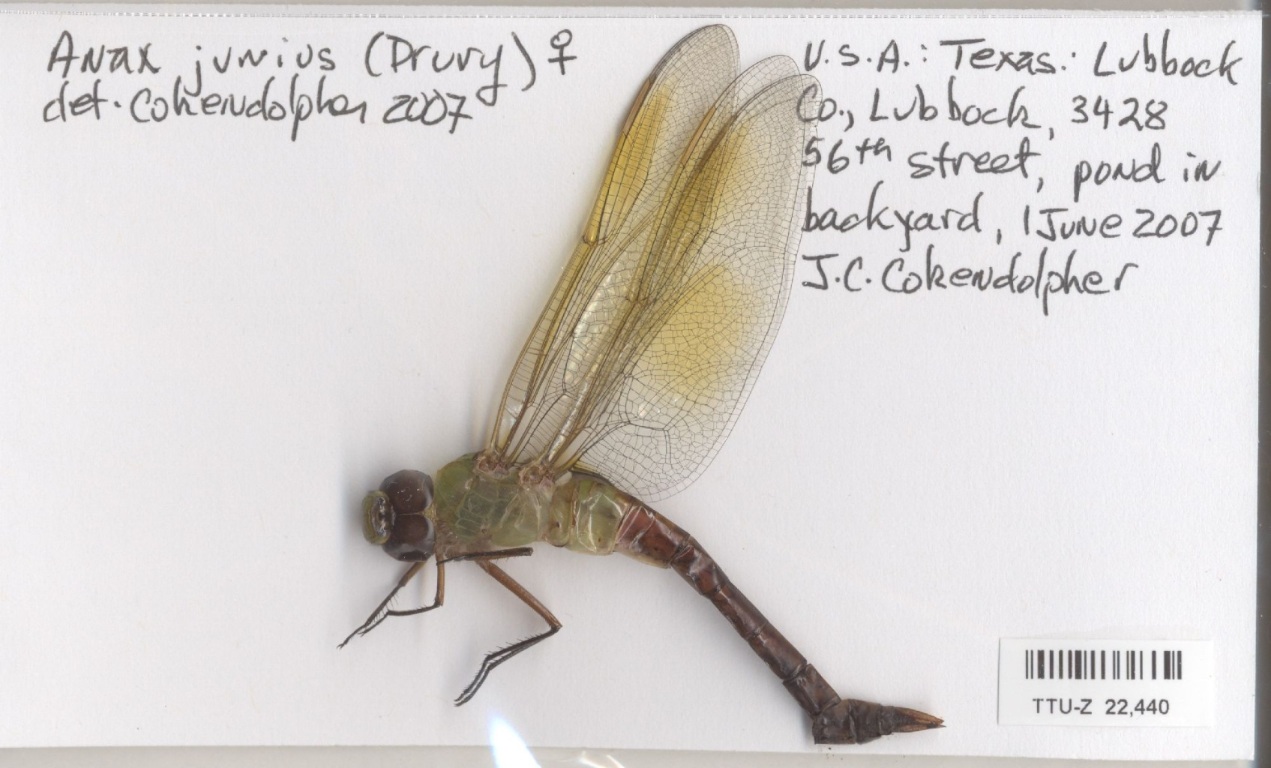 Anax junius (Drury) ♀
det. Cokendolpher 2007
U.S.A.: Texas: Lubbock
Co., Lubbock, 3428
56th street, pond in
backyard, 1 June 2007
J.C. Cokendolpher
TTU-Z 22,440